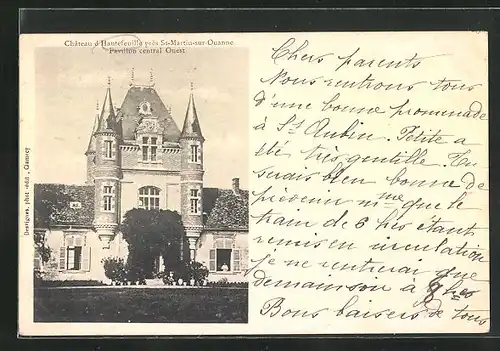 Château d'Hautefeuille près St-Martin-sur-Ouanne
Pavillon central Ouest
Desvignes, phot.-édit., Clamecy
Chers parents
Nous rentrons tous
d'une bonne promenade
à St Aubin. Petite a
été très gentille. Tu
serais bien bonne de
prévenir Mme que le
train de 6 hes étant
remis en circulation
je ne rentrerai que
demain soir à 8 hes
Bons baisers de tous